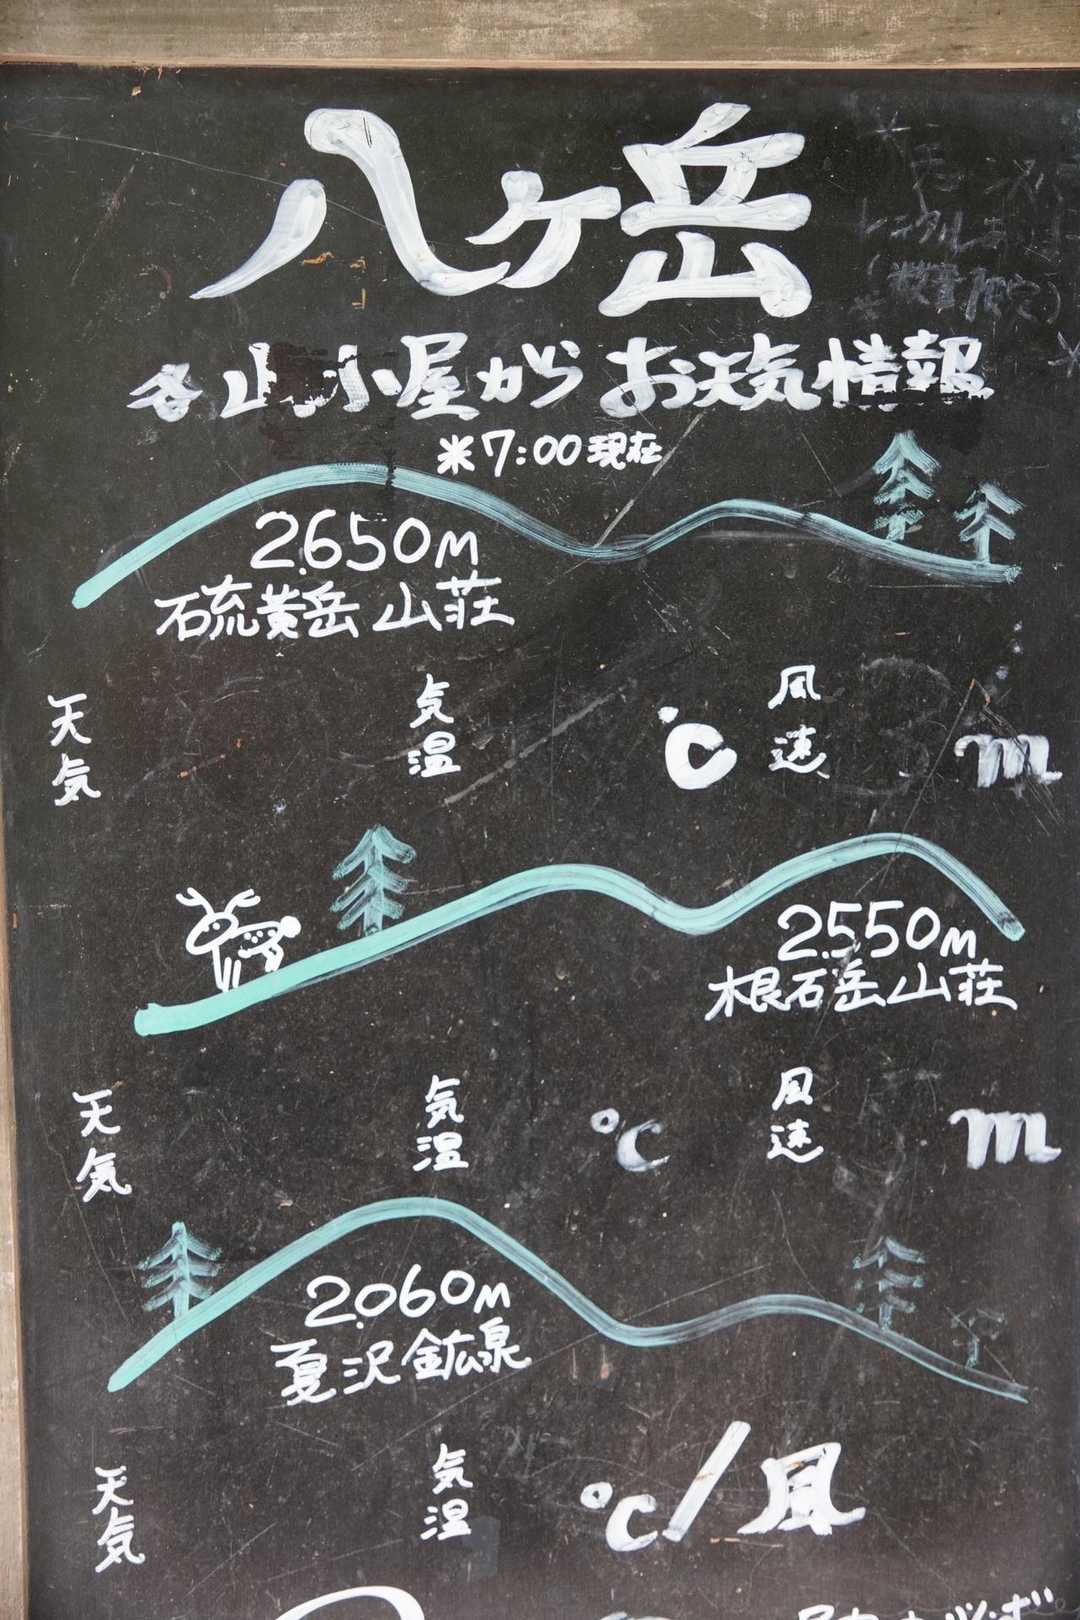 八ヶ岳
各山小屋からお天気情報
※7:00現在
2.650m
硫黄岳山荘
天気 気温 ℃ 風速 m
2.550m
根石岳山荘
天気 気温 ℃ 風速 m
2.060m
夏沢鉱泉
天気 気温 ℃/風